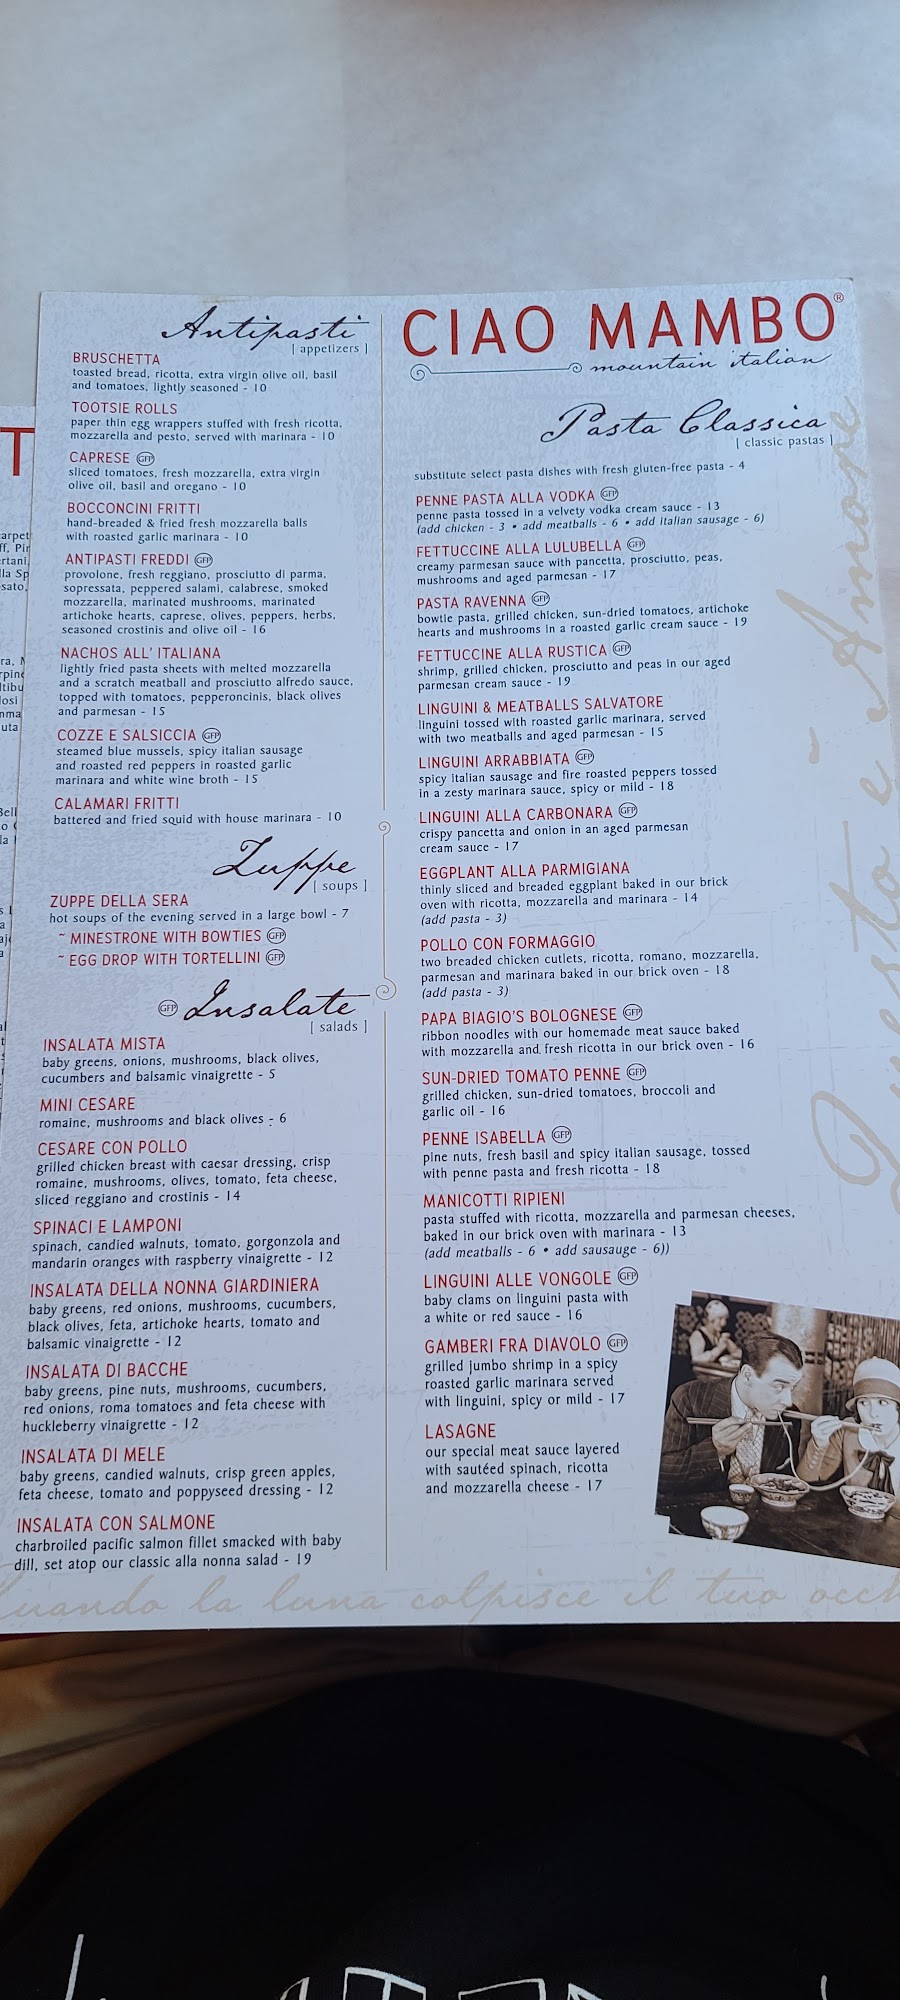 Antipasti
[ appetizers ]
BRUSCHETTA
toasted bread, ricotta, extra virgin olive oil, basil
and tomatoes, lightly seasoned - 10
TOOTSIE ROLLS
paper thin egg wrappers stuffed with fresh ricotta,
mozzarella and pesto, served with marinara - 10
CAPRESE GFP
sliced tomatoes, fresh mozzarella, extra virgin
olive oil, basil and oregano - 10
BOCCONCINI FRITTI
hand-breaded & fried fresh mozzarella balls
with roasted garlic marinara - 10
ANTIPASTI FREDDI GFP
provolone, fresh reggiano, prosciutto di parma,
sopressata, peppered salami, calabrese, smoked
mozzarella, marinated mushrooms, marinated
artichoke hearts, caprese, olives, peppers, herbs,
seasoned crostinis and olive oil - 16
NACHOS ALL' ITALIANA
lightly fried pasta sheets with melted mozzarella
and a scratch meatball and prosciutto alfredo sauce,
topped with tomatoes, pepperoncinis, black olives
and parmesan - 15
COZZE E SALSICCIA GFP
steamed blue mussels, spicy italian sausage
and roasted red peppers in roasted garlic
marinara and white wine broth - 15
CALAMARI FRITTI
battered and fried squid with house marinara - 10
Zuppe
[ soups ]
ZUPPE DELLA SERA
hot soups of the evening served in a large bowl - 7
~ MINESTRONE WITH BOWTIES GFP
~ EGG DROP WITH TORTELLINI GFP
GFP Insalate
[ salads ]
INSALATA MISTA
baby greens, onions, mushrooms, black olives,
cucumbers and balsamic vinaigrette - 5
MINI CESARE
romaine, mushrooms and black olives - 6
CESARE CON POLLO
grilled chicken breast with caesar dressing, crisp
romaine, mushrooms, olives, tomato, feta cheese,
sliced reggiano and crostinis - 14
SPINACI E LAMPONI
spinach, candied walnuts, tomato, gorgonzola and
mandarin oranges with raspberry vinaigrette - 12
INSALATA DELLA NONNA GIARDINIERA
baby greens, red onions, mushrooms, cucumbers,
black olives, feta, artichoke hearts, tomato and
balsamic vinaigrette - 12
INSALATA DI BACCHE
baby greens, pine nuts, mushrooms, cucumbers,
red onions, roma tomatoes and feta cheese with
huckleberry vinaigrette - 12
INSALATA DI MELE
baby greens, candied walnuts, crisp green apples,
feta cheese, tomato and poppyseed dressing - 12
INSALATA CON SALMONE
charbroiled pacific salmon fillet smacked with baby
dill, set atop our classic alla nonna salad - 19
CIAO MAMBO®
mountain italian
Pasta Classica
[ classic pastas ]
substitute select pasta dishes with fresh gluten-free pasta - 4
PENNE PASTA ALLA VODKA GFP
penne pasta tossed in a velvety vodka cream sauce - 13
(add chicken - 3 • add meatballs - 6 • add italian sausage - 6)
FETTUCCINE ALLA LULUBELLA GFP
creamy parmesan sauce with pancetta, prosciutto, peas,
mushrooms and aged parmesan - 17
PASTA RAVENNA GFP
bowtie pasta, grilled chicken, sun-dried tomatoes, artichoke
hearts and mushrooms in a roasted garlic cream sauce - 19
FETTUCCINE ALLA RUSTICA GFP
shrimp, grilled chicken, prosciutto and peas in our aged
parmesan cream sauce - 19
LINGUINI & MEATBALLS SALVATORE
linguini tossed with roasted garlic marinara, served
with two meatballs and aged parmesan - 15
LINGUINI ARRABBIATA GFP
spicy italian sausage and fire roasted peppers tossed
in a zesty marinara sauce, spicy or mild - 18
LINGUINI ALLA CARBONARA GFP
crispy pancetta and onion in an aged parmesan
cream sauce - 17
EGGPLANT ALLA PARMIGIANA
thinly sliced and breaded eggplant baked in our brick
oven with ricotta, mozzarella and marinara - 14
(add pasta - 3)
POLLO CON FORMAGGIO
two breaded chicken cutlets, ricotta, romano, mozzarella,
parmesan and marinara baked in our brick oven - 18
(add pasta - 3)
PAPA BIAGIO'S BOLOGNESE GFP
ribbon noodles with our homemade meat sauce baked
with mozzarella and fresh ricotta in our brick oven - 16
SUN-DRIED TOMATO PENNE GFP
grilled chicken, sun-dried tomatoes, broccoli and
garlic oil - 16
PENNE ISABELLA GFP
pine nuts, fresh basil and spicy italian sausage, tossed
with penne pasta and fresh ricotta - 18
MANICOTTI RIPIENI
pasta stuffed with ricotta, mozzarella and parmesan cheeses,
baked in our brick oven with marinara - 13
(add meatballs - 6 • add sausauge - 6))
LINGUINI ALLE VONGOLE GFP
baby clams on linguini pasta with
a white or red sauce - 16
GAMBERI FRA DIAVOLO GFP
grilled jumbo shrimp in a spicy
roasted garlic marinara served
with linguini, spicy or mild - 17
LASAGNE
our special meat sauce layered
with sautéed spinach, ricotta
and mozzarella cheese - 17
Questo e' Amore
Quando la luna colpisce il tuo occh